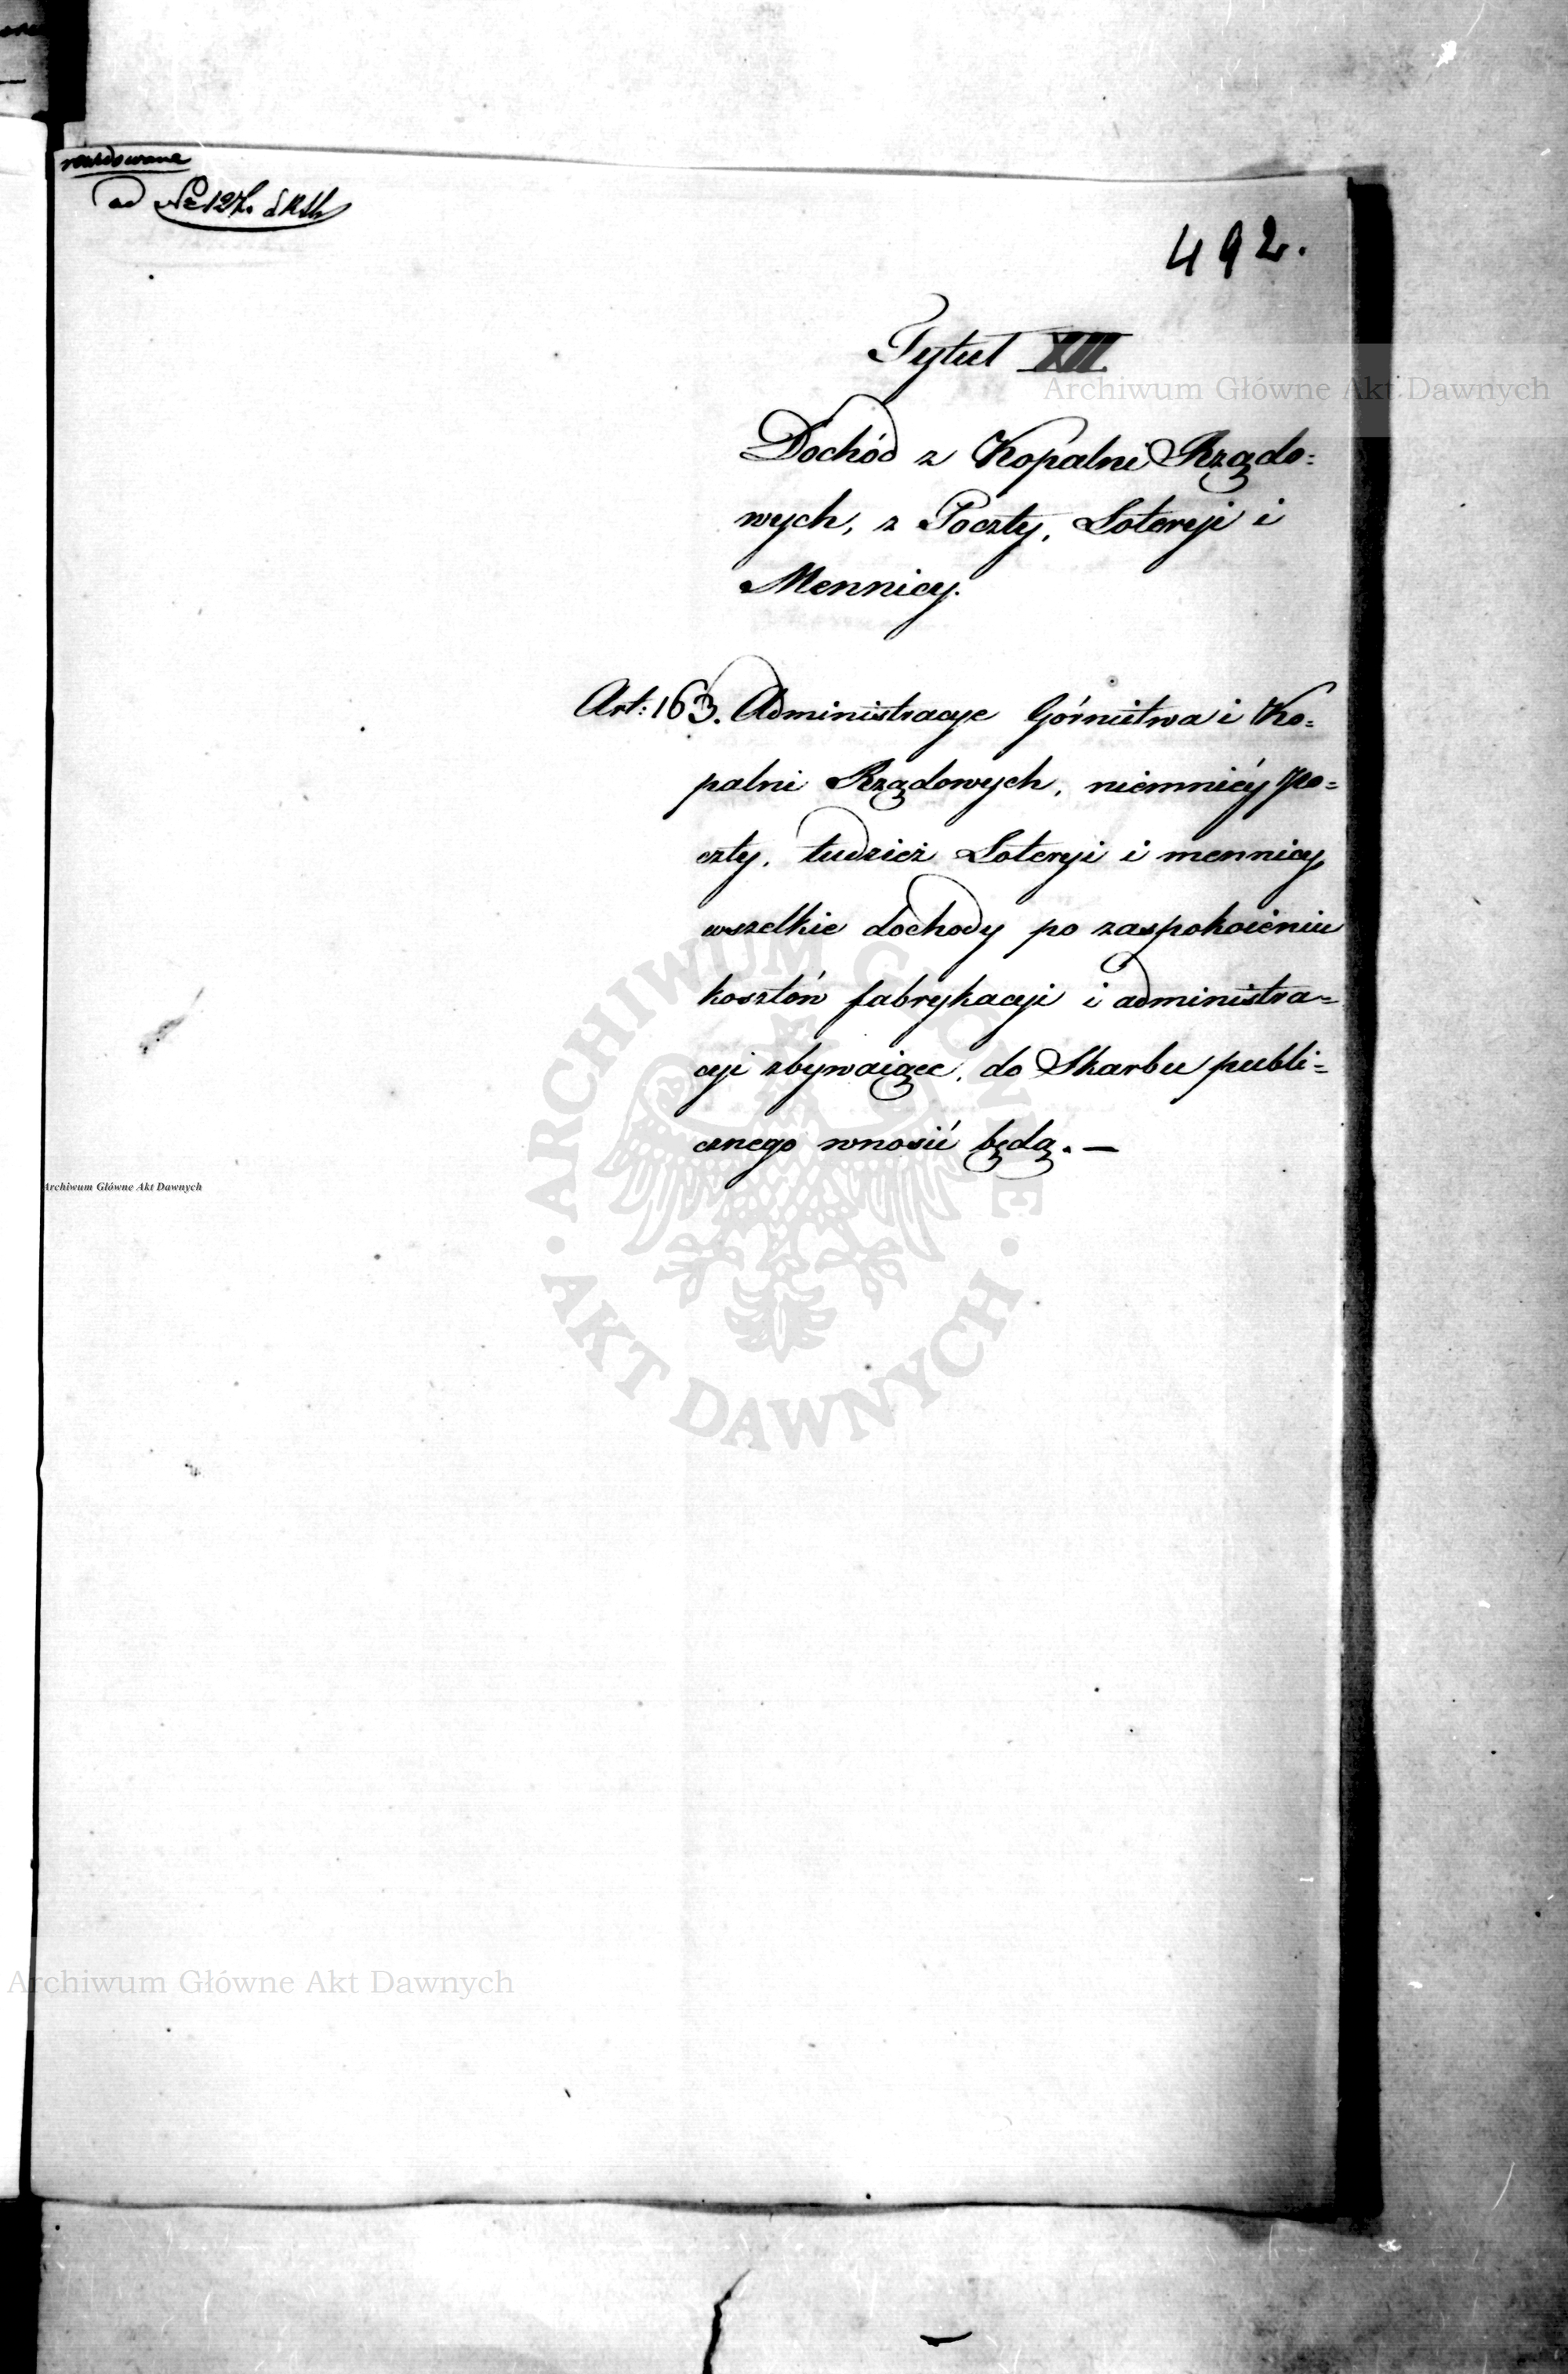 ad № 127.
492.
Tytuł XII
Dochód z Kopalni Rządo=
wych, z Poczty, Loteryi i
Mennicy.
Art: 163. Administracye Górnictwa i Ko=
palni Rządowych, niemniéy Po=
czty, tudzież Loteryi i mennicy,
wszelkie dochody po zaspokoieniu
kosztów fabrykacyi i administra=
cyi zbywaiące, do Skarbu publi=
cznego wnosić będą. —
Archiwum Główne Akt Dawnych
ARCHIWUM GŁÓWNE
AKT DAWNYCH
Archiwum Główne Akt Dawnych
Archiwum Główne Akt Dawnych